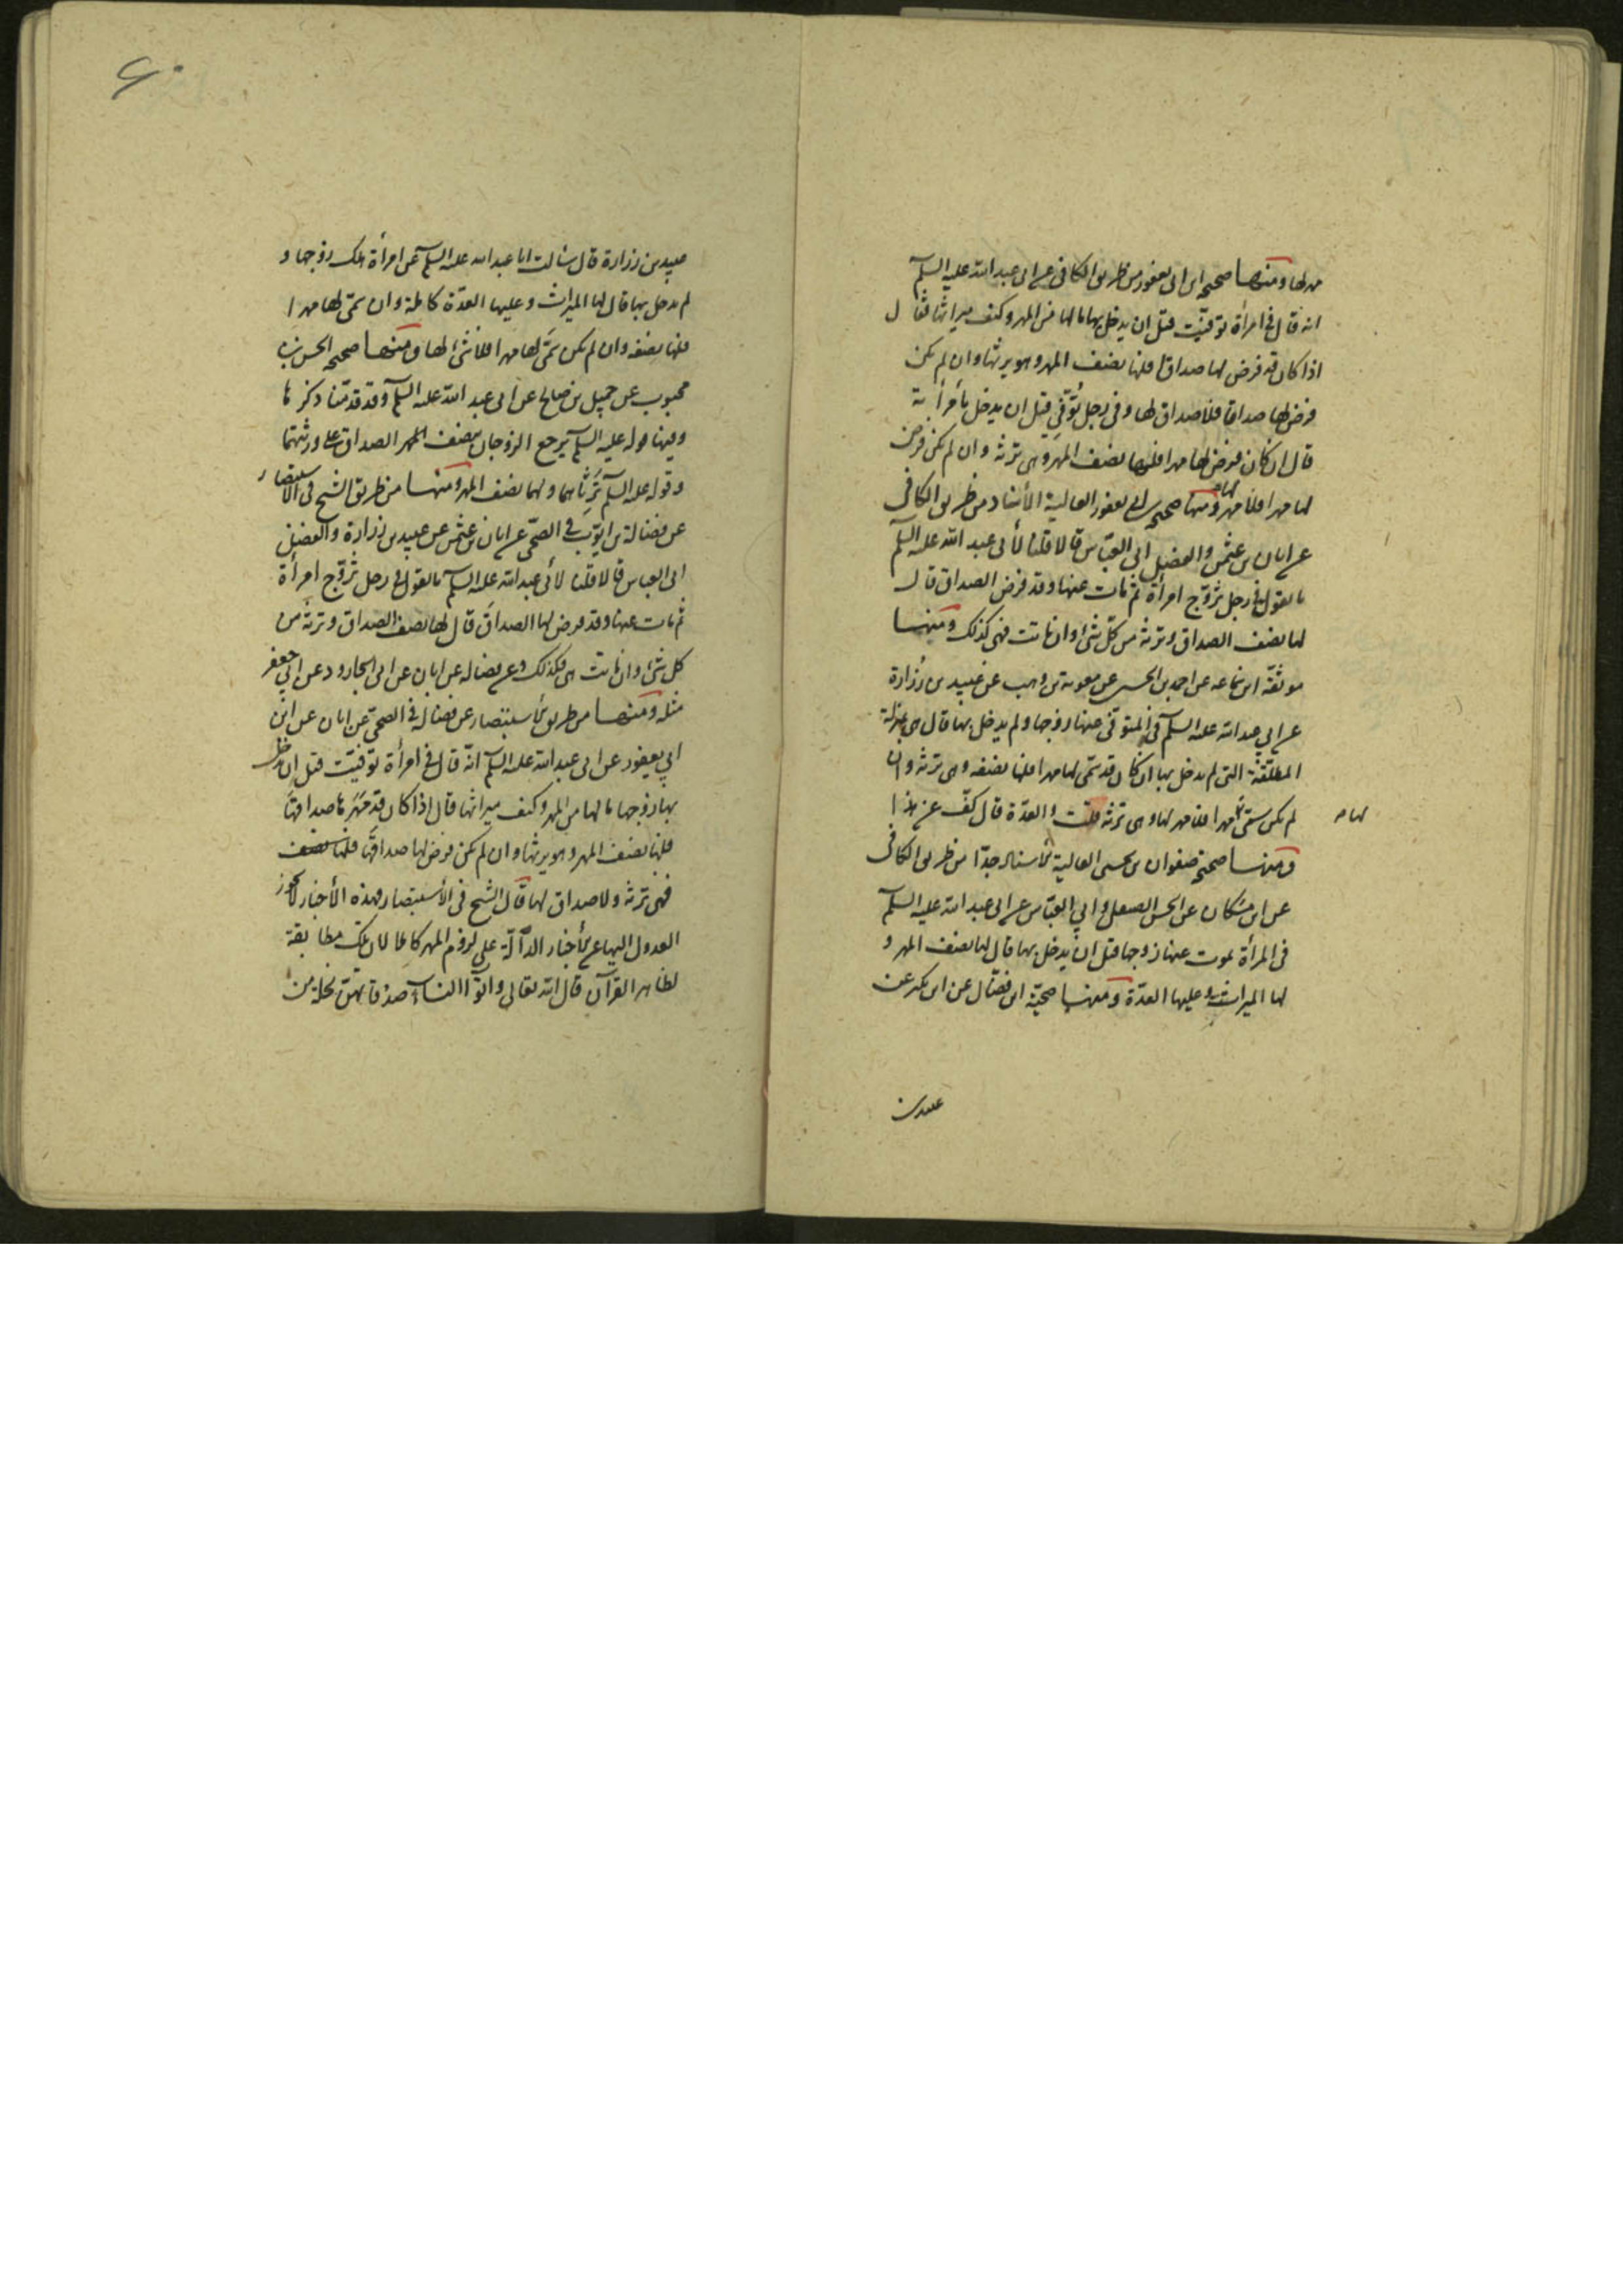 مهر لها ومنها صحيحة ابن ابي يعفور من طريق الكافي عن ابي عبد الله عليه السلم
انه قال في امرأة توفيت قبل ان يدخل بها ما لها من المهر وكيف ميراثها فقال
اذا كان قد فرض لها صداقا فلها نصف المهر وهو يرثها وان لم يكن
فرض لها صداقا فلا صداق لها وفي رجل توفي قبل ان يدخل بامرأته
قال ان كان فرض لها مهرا فلها نصف المهر وهي ترثه وان لم يكن فرض
لها مهرا فلا مهر لها ومنها صحيحة ابن ابي يعفور العالية الأسناد من طريق الكافي
عن ابان بن عثمن والفضل ابي العباس قالا قلنا لأبي عبد الله عليه السلم
ما تقول في رجل تزوج امرأة ثم مات عنها وقد فرض الصداق قال
لها نصف الصداق وترثه من كل شئ وان ماتت فهي كذلك ومنها
موثقة ابن سماعه عن احمد بن الحسن عن معوية بن وهب عن عبيد بن زرارة
عن ابي عبد الله عليه السلم في المتوفى عنها زوجها ولم يدخل بها قال هي بمنزلة
المطلقة التي لم يدخل بها ان كان قد سمى لها مهرا فلها نصفه وهي ترثه وان
لم يكن سمى لها مهرا فلا مهر لها وهي ترثه قلت والعدة قال كف عن هذا
لها ه
ومنها صحيحة صفوان بن يحيى العالية الأسناد جدا من طريق الكافي
عن ابن مسكان عن الحسن الصيقل وابي العباس عن ابي عبد الله عليه السلم
في المرأة يموت عنها زوجها قبل ان يدخل بها قال لها نصف المهر و
لها الميراث وعليها العدة ومنها صحيحة ابن فضال عن ابن بكير عن
عبيد بن
۶۰
عبيد بن زرارة قال سالت ابا عبد الله عليه السلم عن امرأة هلك زوجها و
لم يدخل بها قال لها الميراث وعليها العدة كاملة وان سمى لها مهرا
فلها نصفه وان لم يكن سمى لها مهرا فلا شئ لها ومنها صحيحة الحسن بن
محبوب عن جميل بن صالح عن ابي عبد الله عليه السلم وقد قدمنا ذكرها
وفيها قوله عليه السلم يرجع الزوجان بنصف الصداق على ورثتهما
وقوله عليه السلم يرثانهما ولهما نصف المهر ومنها من طريق الشيخ في الاستبصار
عن فضالة بن ايوب في الصحى عن ابان بن عثمن عن عبيد بن زرارة والفضل
ابي العباس قالا قلنا لأبي عبد الله عليه السلم ما تقول في رجل تزوج امرأة
ثم مات عنها وقد فرض لها الصداق قال لها نصف الصداق وترثه من
كل شئ وان ماتت هي فكذلك وعن فضاله عن ابان عن ابي الجارود عن ابي جعفر
مثله ومنها من طريق الأستبصار عن فضالة في الصحى عن ابان عن ابن
ابي يعفور عن ابي عبد الله عليه السلم انه قال في امرأة توفيت قبل ان يدخل
بها زوجها ما لها من المهر وكيف ميراثها قال اذا كان قد مهرها صداقها
فلها نصف المهر وهو يرثها وان لم يكن فرض لها صداقها فلها نصف
فهي ترثه ولا صداق لها قال الشيخ في الأستبصار فهذه الأخبار لا يجوز
العدول اليها عن الأخبار الدالة على لزوم المهر كاملا لان تلك مطابقة
لظاهر القرآن قال الله تعالى وآتوا النساء صدقاتهن نحلة من